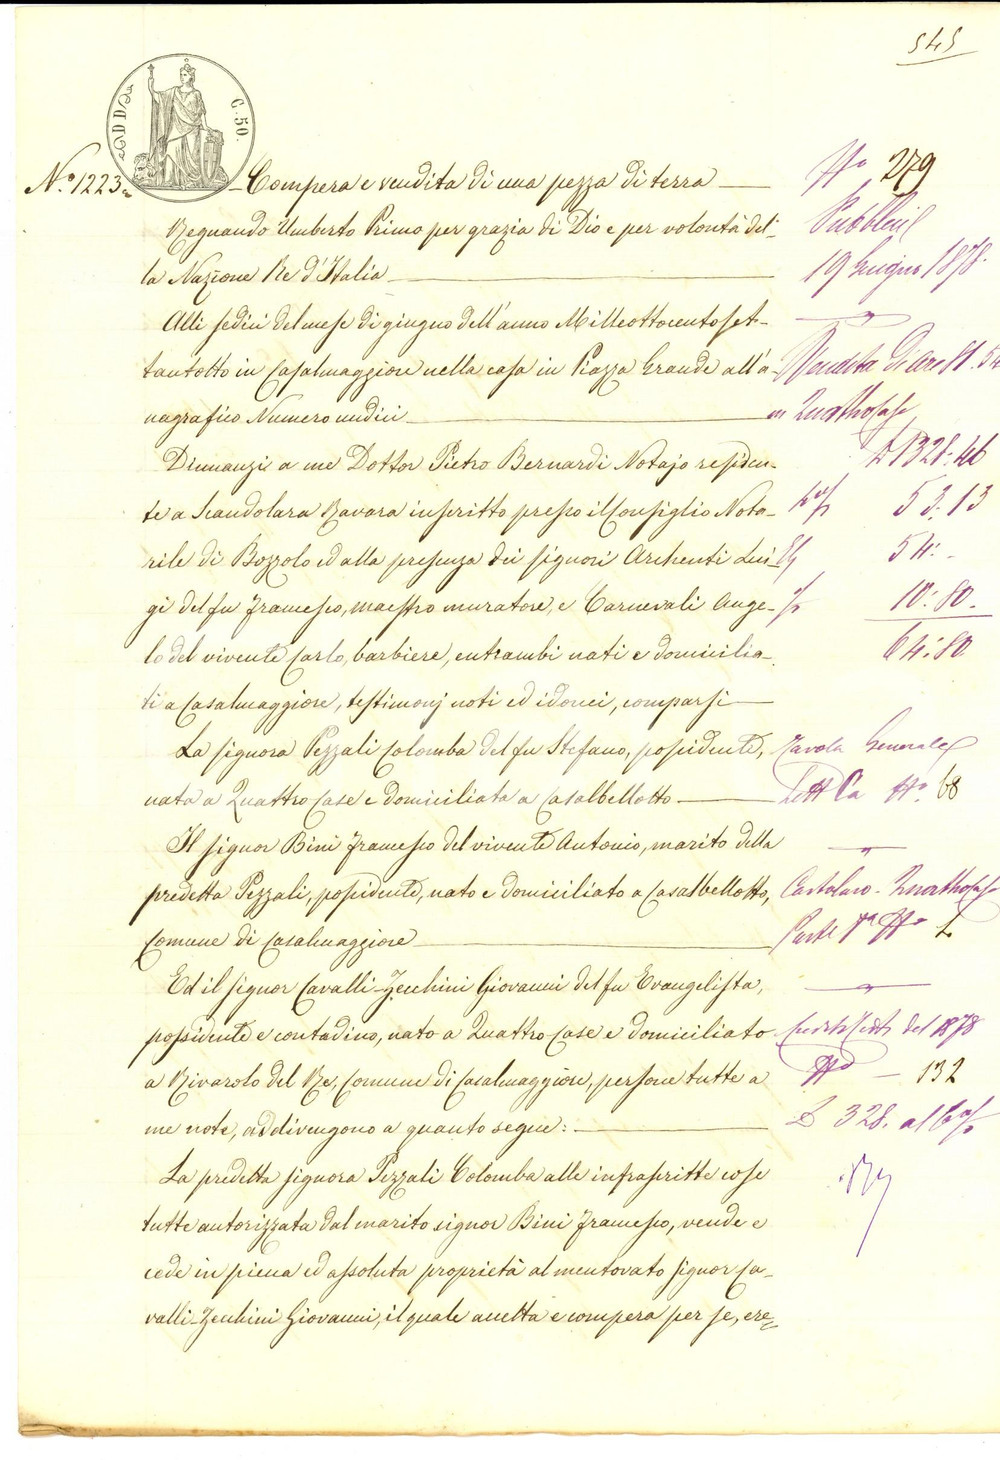 545
DD
C. 50.
N.º 1223.
Compera e vendita di una pezza di terra
Regnando Umberto Primo per grazia di Dio e per volontà del-
la Nazione Re d'Italia
Alli sedici del mese di giugno dell'anno Milleottocentoset-
tantotto in Casalmaggiore nella casa in Piazza Grande all'a-
nagrafico Numero undici
Dinnanzi a me Dottor Pietro Bernardi Notajo residen-
te a Scandolara Ravara inscritto presso il Consiglio Nota-
rile di Bozzolo ed alla presenza dei signori Archenti Lui-
gi del fu Francesco, maestro muratore, e Carnevali Ange-
lo del vivente Carlo, barbiere, entrambi nati e domicilia-
ti a Casalmaggiore, testimonj noti ed idonei, comparsi
La signora Pezzali Colomba del fu Stefano, possidente,
nata a Quattro Case e domiciliata a Casalbellotto
Il signor Bini Francesco del vivente Antonio, marito della
predetta Pezzali, possidente, nato e domiciliato a Casalbellotto,
Comune di Casalmaggiore
Ed il signor Cavalli-Zecchini Giovanni del fu Evangelista,
possidente e contadino, nato a Quattro Case e domiciliato
a Rivarolo del Re, Comune di Casalmaggiore, persone tutte a
me note, addivengono a quanto segue:
La predetta signora Pezzali Colomba alle infrascritte cose
tutte autorizzata dal marito signor Bini Francesco, vende e
cede in piena ed assoluta proprietà al mentovato signor Ca-
valli-Zecchini Giovanni, il quale accetta e compera per se, ere-
Nº 279
19 Giugno 1878.
Vendita di are 81. 54
in Quattrocase
£ 1328:46
53.13
54:-
10:80.
64:80
Tavola Generale
Lett Pa Nº 68
Cartolaro Quattrocase
Parte 1ª Nº
del 1878
Nº 132
£ 328. al 6%